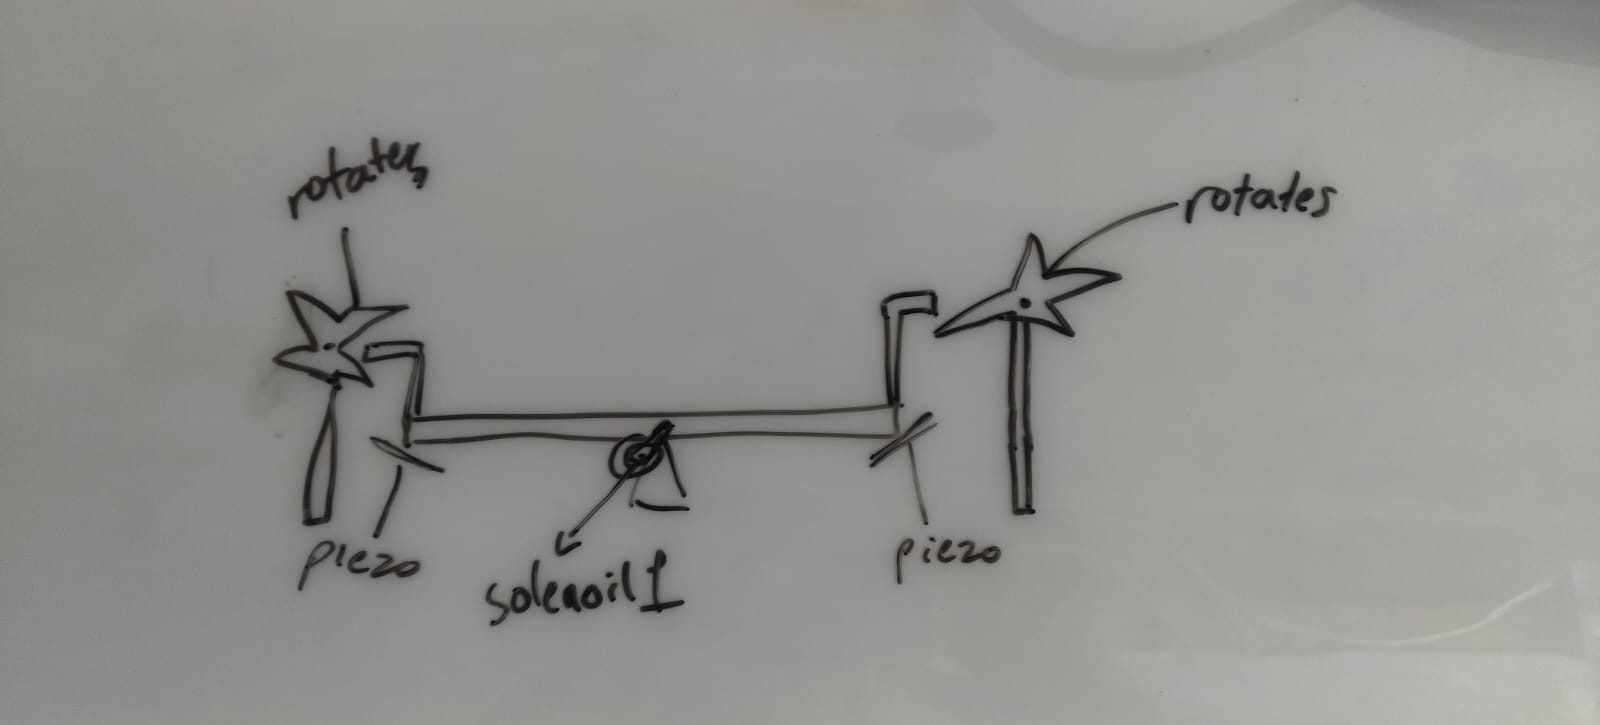 rotates
rotates
piezo
solenoil 1
piezo